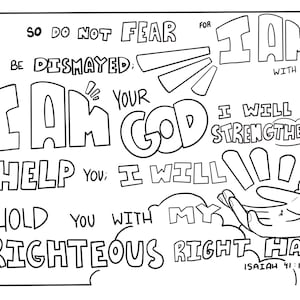 SO DO NOT FEAR FOR I AM
BE DISMAYED; WITH
I AM YOUR GOD I WILL
STRENGTHE
HELP YOU; I WILL
HOLD YOU WITH MY
RIGHTEOUS RIGHT HA
ISAIAH 41:1